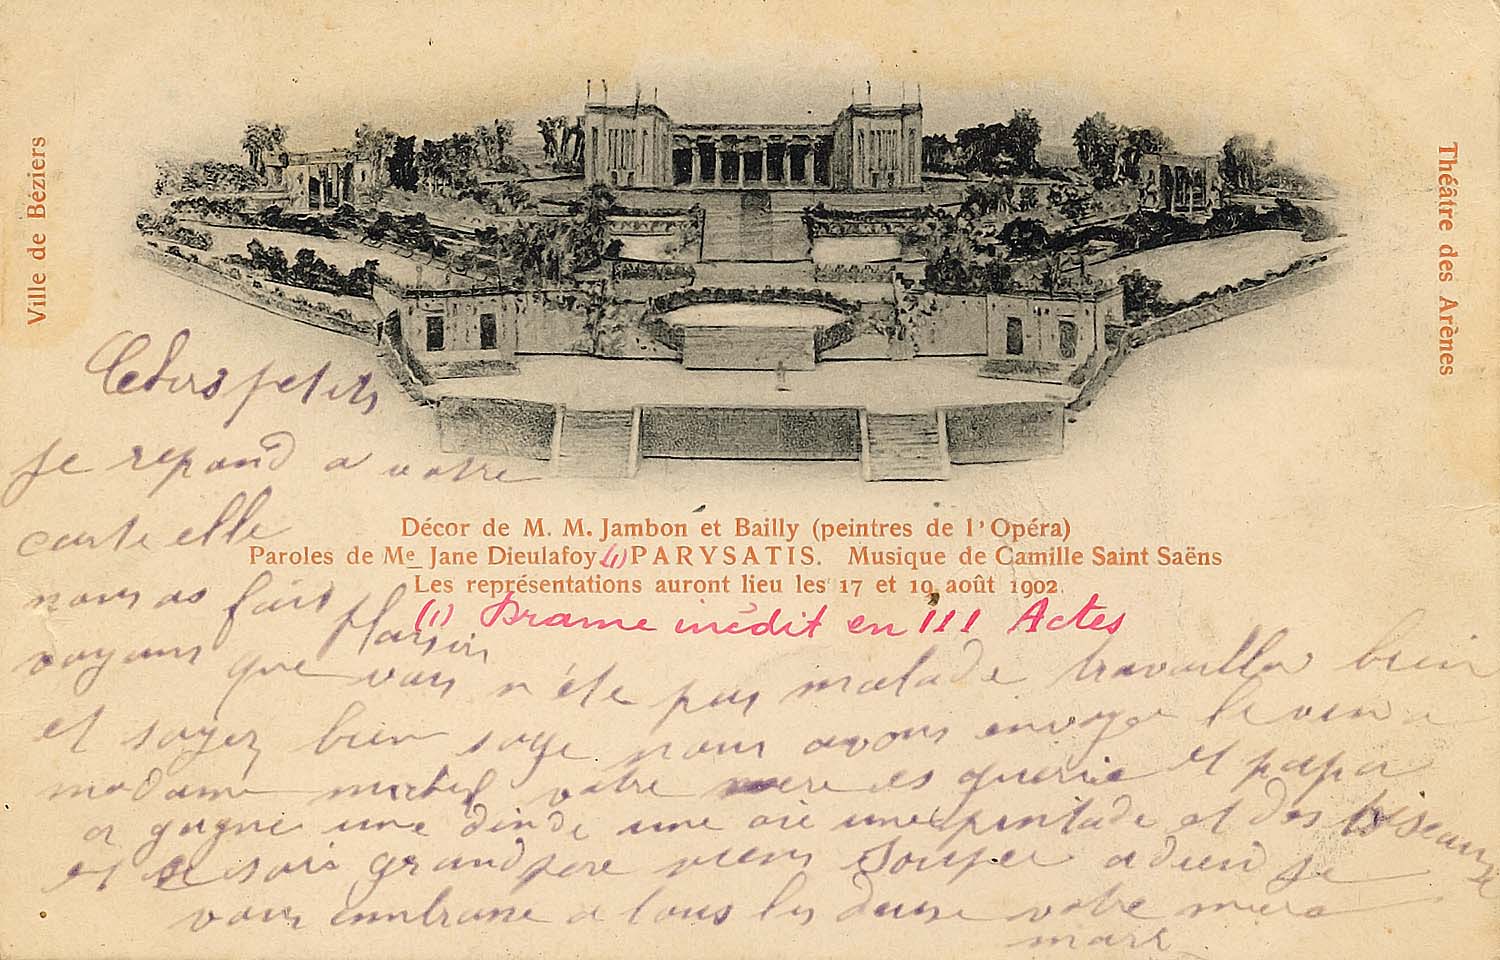 Ville de Béziers
Théâtre des Arènes
Décor de M. M. Jambon et Bailly (peintres de l'Opéra)
Paroles de Me Jane Dieulafoy (1) PARYSATIS. Musique de Camille Saint Saëns
Les représentations auront lieu les 17 et 19 août 1902.
(1) Drame inédit en III Actes
petits
je repond a votre
carte elle
nous as fait plaisir
voyant que vous n'ete pas malade travaller bien
et soyez bien sage nous avons envoyer le vin a
madame michel votre mere es guerie et papa
a gagne une dinde une oie une pintade et des oiseaux
et ce soir grandpere viens souper adieu je
vous embrase a tous les deux votre mere
marie